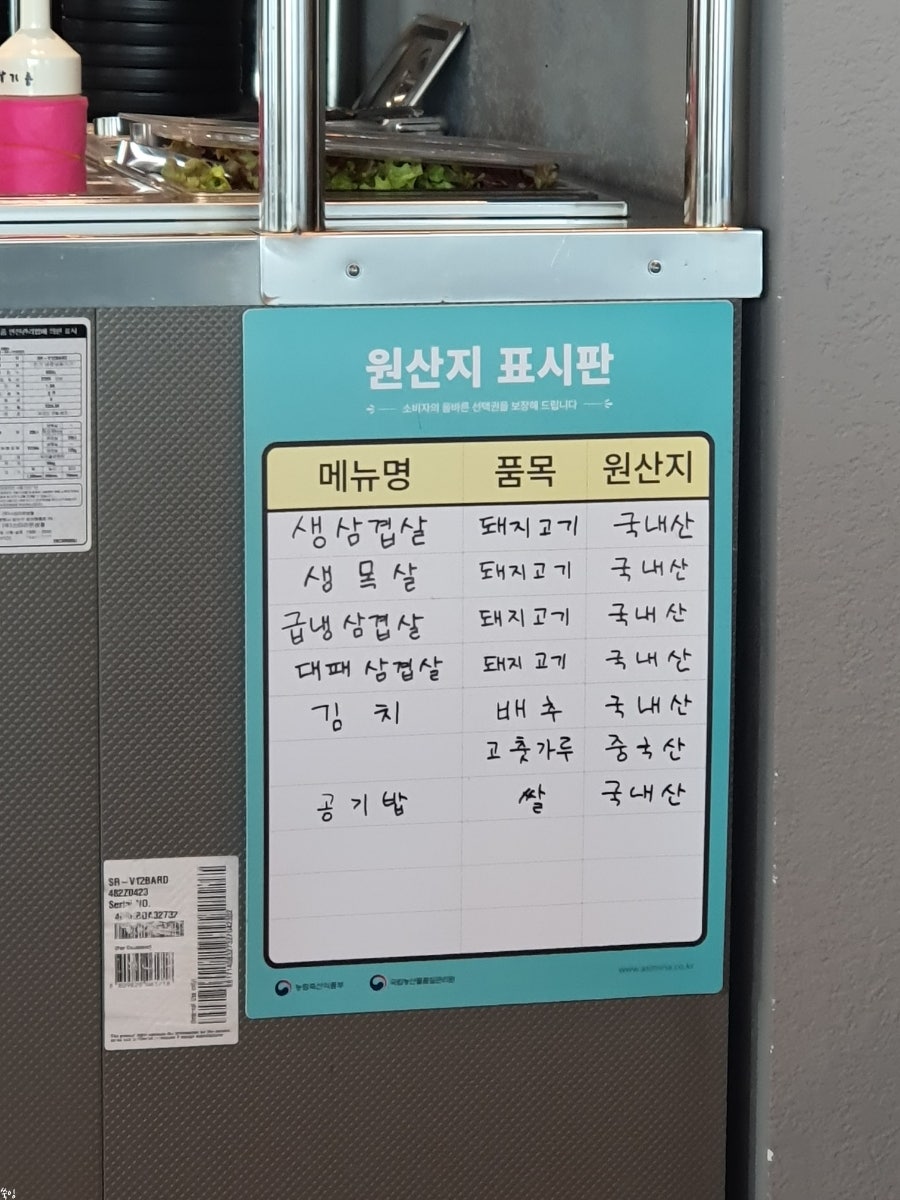 원산지 표시판
소비자의 올바른 선택권을 보장해 드립니다
메뉴명 품목 원산지
생삼겹살 돼지고기 국내산
생 목 살 돼지고기 국내산
급냉 삼겹살 돼지고기 국내산
대패 삼겹살 돼지고기 국내산
김 치 배추 국내산
고춧가루 중국산
공기밥 쌀 국내산
농림축산식품부 국립농산물품질관리원
SR-V12BARD
Serial NO.